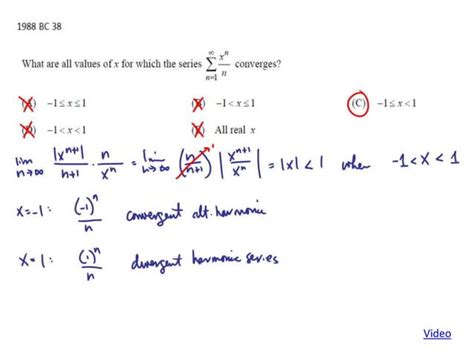 1988 BC 38
What are all values of x for which the series \sum_{n=1}^{\infty} \frac{x^n}{n} converges?
(A) −1 ≤ x ≤ 1 (B) −1 < x ≤ 1 (C) −1 ≤ x < 1
(D) −1 < x < 1 (E) All real x
\lim_{n→∞} \frac{|x^{n+1}|}{n+1} · \frac{n}{x^n} = \lim_{n→∞} (\frac{n}{n+1})^1 |\frac{x^{n+1}}{x^n}| = |x| < 1 when -1 < x < 1
x=-1: \frac{(-1)^n}{n} convergent alt. harmonic
x=1: \frac{(1)^n}{n} divergent harmonic series
Video